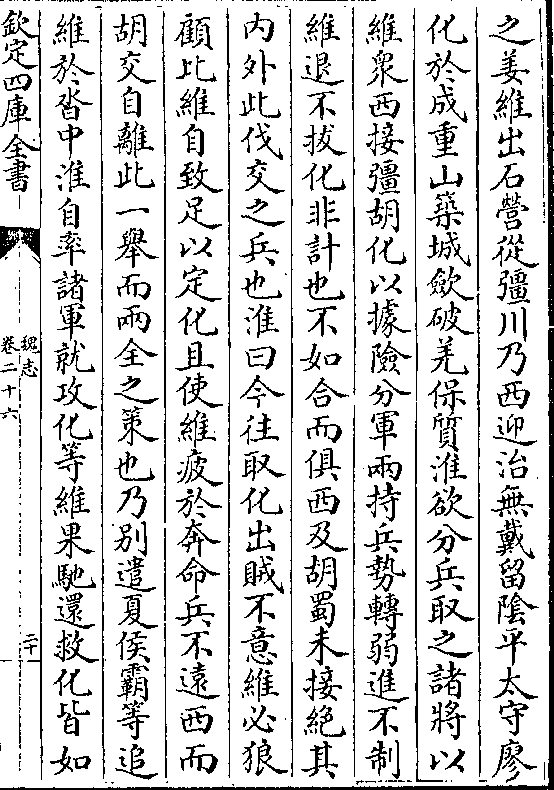 之姜維出石營從彊川乃西迎治無戴留陰平太守廖
化於成重山築城斂破羌保質淮欲分兵取之諸將以
維衆西接彊胡化以據險分軍兩持兵勢轉弱進不制
維退不拔化非計也不如合而俱西及胡蜀未接絶其
内外此伐交之兵也淮曰今往取化出賊不意維必狼
顧比維自致足以定化且使維疲於奔命兵不遠西而
胡交自離此一舉而兩全之策也乃别遣夏侯霸等追
維於沓中淮自率諸軍就攻化等維果馳還救化皆如
欽定四庫全書
魏志
卷二十六
二十